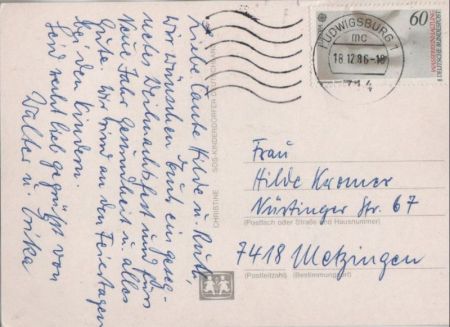 Liebe Tante Hilde u. Ruth,
wir wünschen Euch ein geseg-
netes Weihnachtsfest und fürs
Neue Jahr Gesundheit u. alles
Gute. Wir sind an den Feiertagen
bei den Kindern.
Seid recht lieb gegrüßt von
Walter u. Erika
CHRISTINE SOS-KINDERDÖRFER
LUDWIGSBURG 1
mc
18.12.86-18
714
60
DEUTSCHE BUNDESPOST
Frau
Hilde Kromer
Nürtinger Str. 67
(Postfach oder Straße und Hausnummer)
7418 Metzingen
(Postleitzahl) (Bestimmungsort)